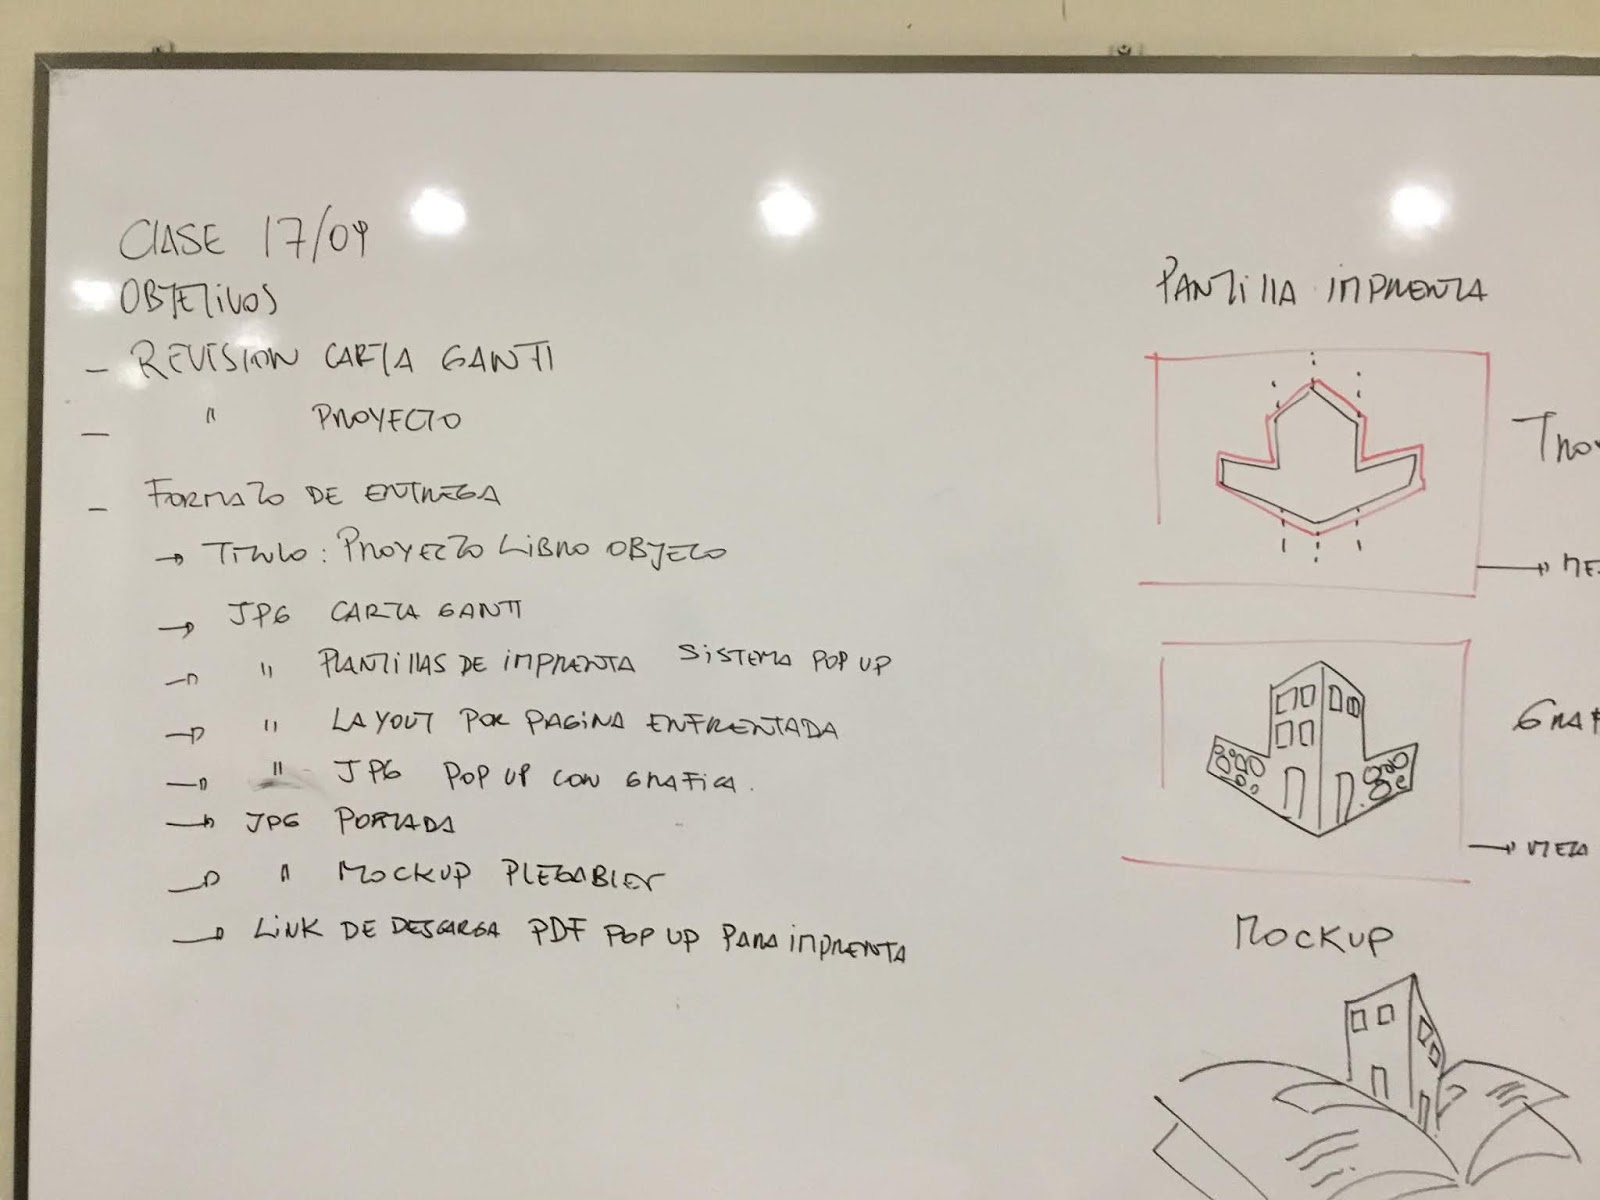 CLASE 17/09
OBJETIVOS
- REVISION CARTA GANTT
- " PROYECTO
- FORMATO DE ENTREGA
→ TITULO: PROYECTO LIBRO OBJETO
→ JPG CARTA GANTT
→ " PLANTILLAS DE IMPRENTA SISTEMA POP UP
→ " LAYOUT POR PAGINA ENFRENTADA
→ " JPG POP UP CON GRAFICA.
→ JPG PORTADA
→ " MOCKUP PLEGABLES
→ LINK DE DESCARGA PDF POP UP PARA IMPRENTA
PANTILLA IMPRENTA
MOCKUP